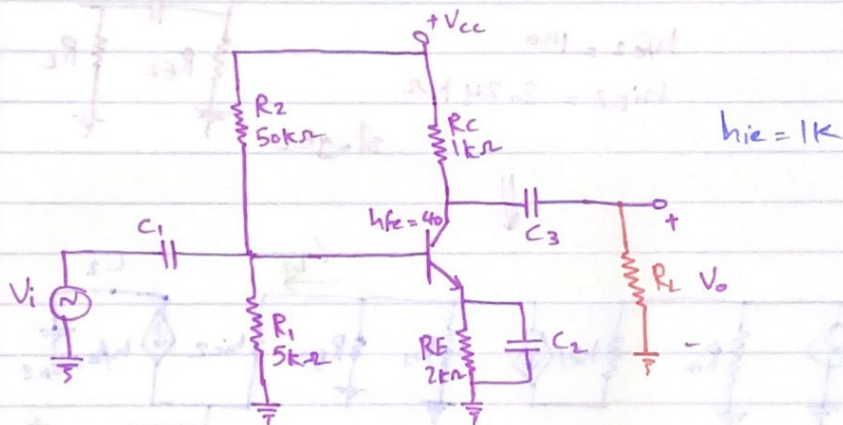 +Vcc
R2
50kΩ
RC
1kΩ
hie = 1K
hfe=40
C1
C3
+
Vi
RL
Vo
R1
5kΩ
RE
2kΩ
C2
-